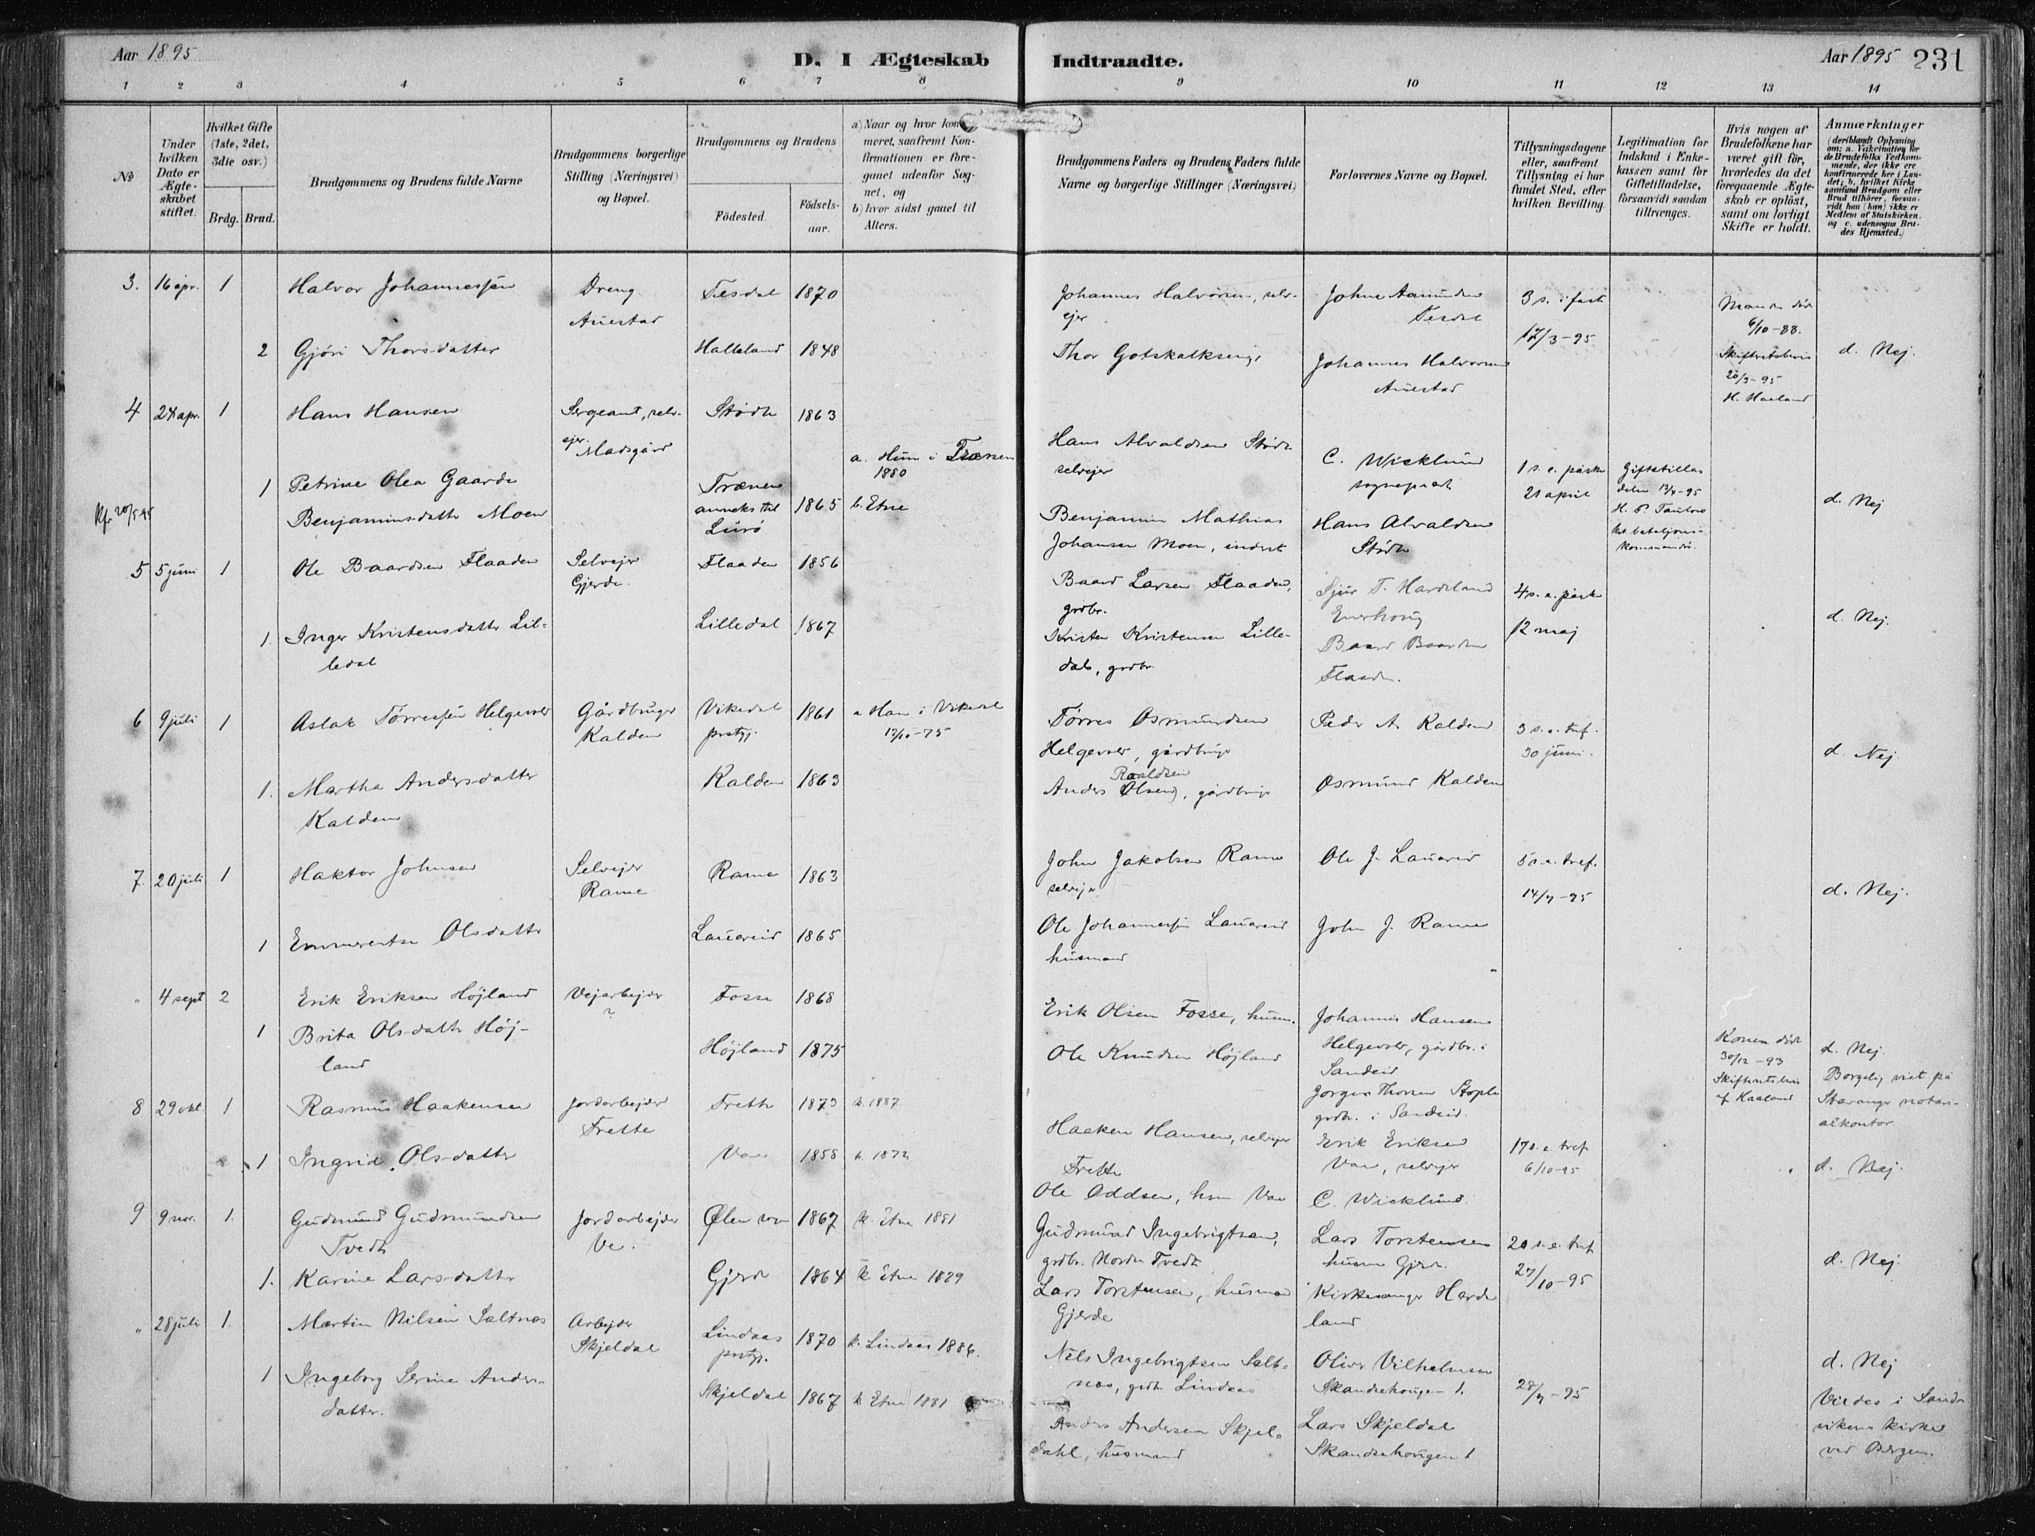 Aar 1895
D. I Ægteskab Indtraadte.
Aar 1895 231
1 2 3 4 5 6 7 8 9 10 11 12 13 14
No
Under hvilken Dato er Ægteskabet stiftet.
Hvilket Gifte (1ste, 2det, 3die osv.)
Brdg. Brud.
Brudgommens og Brudens fulde Navne
Brudgommens borgerlige Stilling (Næringsvei) og Bopæl.
Brudgommens og Brudens
Födested. Födselsaar.
a) Naar og hvor konfirmeret, saafremt Konfirmationen er foregaaet udenför Sognet, og
b) hvor sidst gaaet til Alters.
Brudgommens Faders og Brudens Faders fulde Navne og borgerlige Stillinger (Næringsvei)
Forlovernes Navne og Bopæl.
Tillysningsdagene eller, saafremt Tillysning ei har fundet Sted, efter hvilken Bevilling.
Legitimation for Indskud i Enkekassen samt for Giftetilladelse, forsaavidt saadan tiltrænges.
Hvis nogen af Brudefolkene har været gift för, hvorledes da det foregaaende Ægteskab er oplöst, samt om lovligt Skifte er holdt.
Anmærkninger
3. 16 apr. 1 Halvor Johannessøn Dreng Auestad Tesdal 1870
Johannes Halvorsen, selvejer
Johne Aamunden Tesdal
3 s. i fast 17/3-95
Manden død 6/10-88.
2 Gjøri Thorsdatter Halleland 1848
Thor Gotskalksen
Johannes Halvorsen Auestad
20/3-95 H. Haaland
d. Nej.
4 24 apr. 1 Hans Hansen Sergeant, selvejer. Madsgård Stødle 1863
a. Hun i Trænen 1880
Hans Alvaldsen Stødle selvejer
C. Wicklund sogneprest
1 s. e. påske 21 april
Giftetilladelse 13/4-95
1 Petrine Olea Gaarde Benjaminsdatter Moen
Trænen anneks til Lurø 1865 b. Etne
Benjamin Mathias Johansen Moen, inderst
Hans Alvaldsen Stødle
d. Nej
5 5 juni 1 Ole Baardsen Flaaden Selvejer Gjerde. Flaaden 1856
Baard Larsen Flaaden, grdbr.
Sjur T. Hardeland
4 s. e. påske 12 maj
1. Inger Kristensdatter Lilledal Lilledal 1867
Kristen Kristensen Lilledal, grdbr.
Baard Baardsen Flaaden.
d. Nej.
6 9 juli 1 Aslak Tørresen Helgevold Gårdbruger Kalden Vikedal prstgj. 1861
a Han i Vikedal 17/10-75
Tørres Osmundsen Helgevold, gårdbruger
Peder A. Kalden
3 s. e. tref. 30 juni.
1. Martha Andersdatter Kalden Kalden 1863
Roaldsen
Anders (Olsen), gårdbruger
Osmund Kalden
d. Nej
7. 20 juli 1 Haktor Johnsen Selvejer Rame Rame 1863
John Jakobsen Rame selvejer
Ole J. Lauareid
5 s. e. tref. 14/7-95
d. Nej.
1 Emmerentse Olsdatter Lauareid 1865
Ole Johannessen Lauareid husmand
John J. Rame
" 4 sept 2 Erik Eriksen Højland Vejarbejder Fosse 1868
Erik Olsen Fosse, husm.
Johannes Hansen Helgevold, gårdbr. i Sandeid
Konen død 30/12-93
1 Brita Olsdatter Højland Højland 1875
Ole Knudsen Højland
Jorgen Thorsen Stople grdbr. i Sandeid.
d. Nej.
Borgelig viet på Stavanger notarialkontor.
8 29 okt 1 Rasmus Haakensen Jordarbejder Frette Frette 1873 k. 1887
Haaken Hansen, selvejer Frette
Erik Eriksen Vae, selvejer
17 s. e tref 6/10-95
1 Ingrid Olsdatter Vae 1858 k. 1872
Ole Oddsen, hsm Vae
C. Wicklund.
d. Nej.
9 9 nov. 1. Gudmund Gudmundsen Tvedt Jordarbejder Ve. Ølen 1867 k. Etne 1881
Gudmund Ingebrigtsen, grdbr. Nordre Tvedt
Lars Torstensen husm Gjerde.
20 s. e. tref 27/10-95
d. Nej
1. Karine Larsdatter Gjerde 1864 k. Etne 1879
Lars Torstensen, husmand Gjerde
Kirkesanger Hardeland
" 28 juli 1. Martin Nilsen Saltnæs Arbejder Skjeldal Lindaas prstgj. 1870 k. Lindaas 1886.
Nils Ingebrigtsen Saltnæs, grdbr Lindaas
Oliver Vilhelmsen Skandsehougen 1.
28/7-95
d. Nej
1 Ingeborg Serine Andersdatter. Skjeldal 1867 k Etne 1881
Anders Andersen Skjeldahl, husmand
Lars Skjeldal Skandsehougen 1
Viedes i Sandvikens kirke ved Bergen.